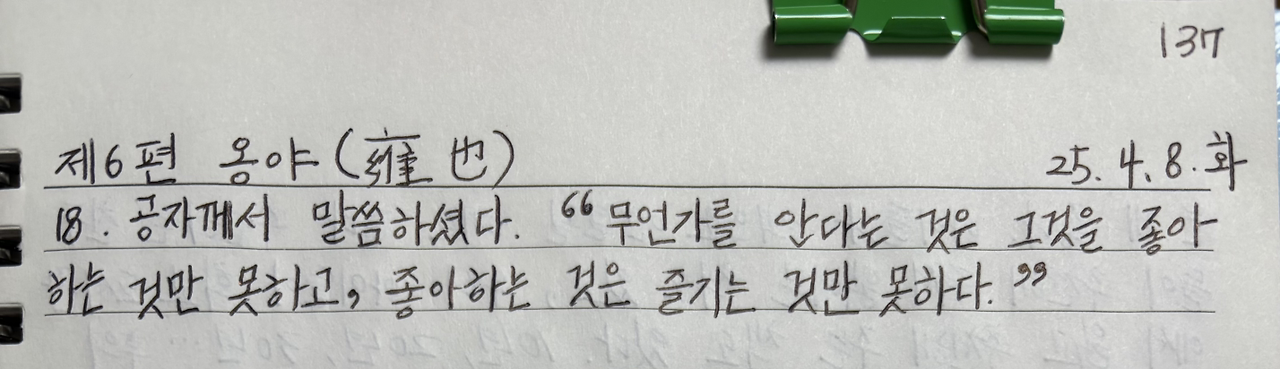 137
제6편 옹야(雍也) 25. 4. 8. 화
18. 공자께서 말씀하셨다. “무언가를 안다는 것은 그것을 좋아
하는 것만 못하고, 좋아하는 것은 즐기는 것만 못하다.”